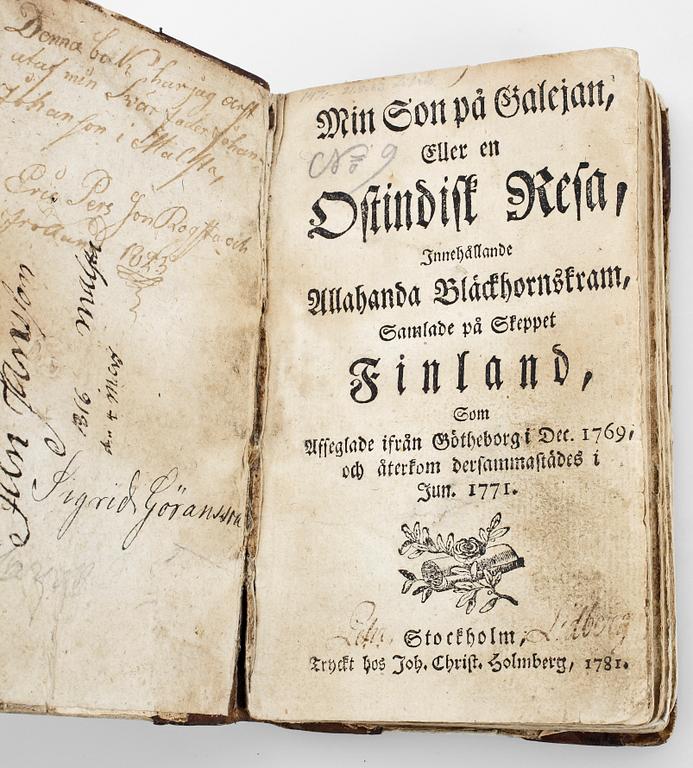 Denna bok har jag ärft
utaf min Svär fader Johan
Johanson i
Eric Pers Son
1823
Jan Jansson
1816
Sigrid Göransson
No 9
Min Son på Galejan,
Eller en
Ostindisk Resa,
Innehållande
Allahanda Bläckhornskram,
Samlade på Skeppet
Finland,
Som
Affeglade ifrån Götheborg i Dec. 1769,
och återkom dersammastädes i
Jun. 1771.
Stockholm, Lidberg
Tryckt hos Joh. Christ. Holmberg, 1781.